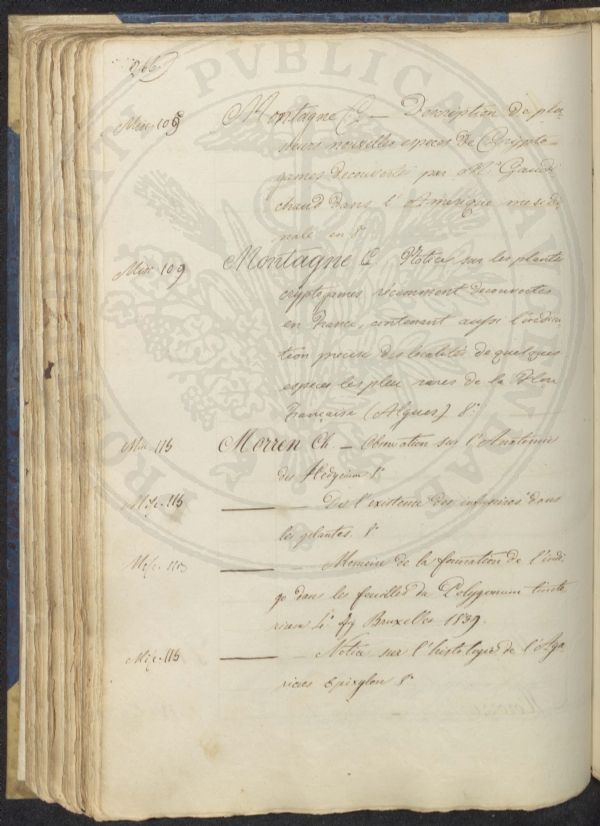 266
Misc. 109 Montagne C. — Description de plu-
sieurs nouvelles especes de Crypto-
games decouvertes par Mr. Gaudi-
chaud dans l'Amerique meridi-
nale in 8°
Misc 109 Montagne C. Notice sur les plantes
cryptogames recemment decouvertes
en France, contenant aussi l'indica-
tion precise des localités de quelques
especes les plu rares de la Flore
Française (Algues) 8°
Misc. 115 Morren Ch. — Observation sur l'Anatomie
des Hedychium 8°
Misc. 115 — De l'existence des infusoires dans
les plantes. 8°
Misc. 115 — Memoire de la formation de l'indi-
go dans les feuilles du Polygonum tincto-
rium Bruxelles 1839.
Misc. 115 — Notice sur l'histologie de l'Aga-
ricus Epixylon 8°
PROVINCIA
PUBLICA